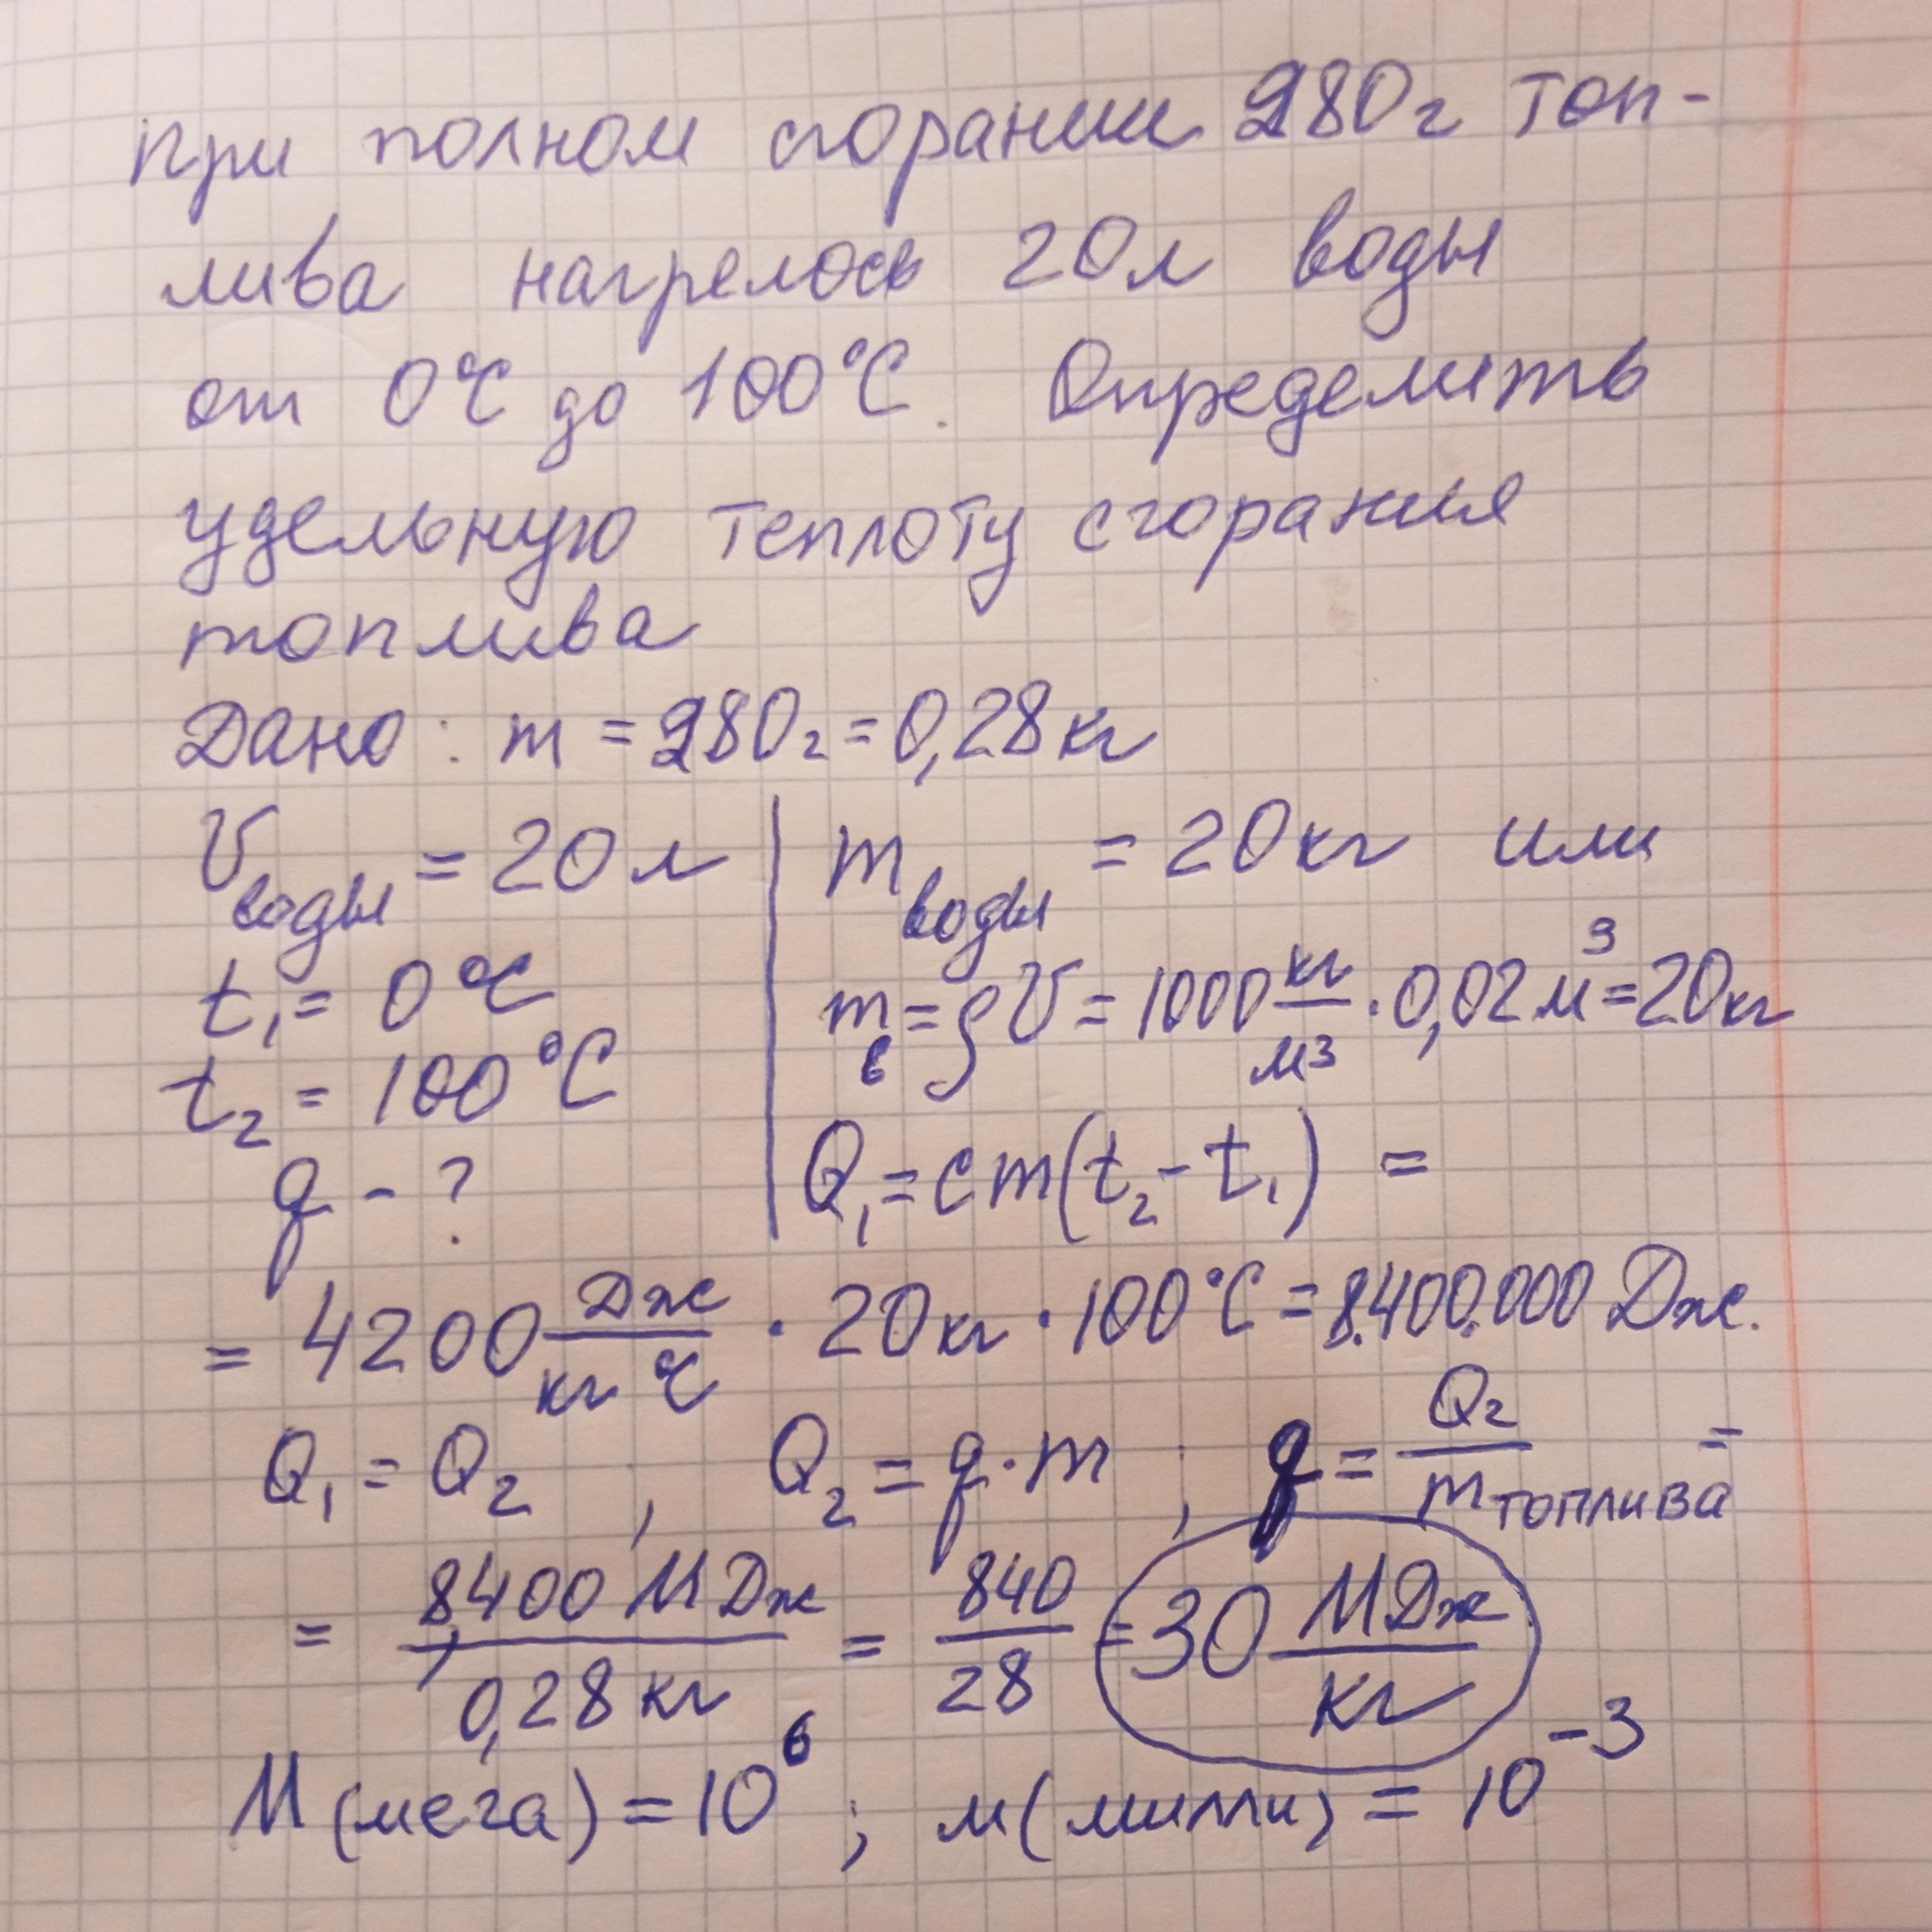 При полном сгорании 280г топ-
лива нагрелось 20л воды
от 0°C до 100°C. Определить
удельную теплоту сгорания
топлива
Дано: m = 280г = 0,28кг
V воды = 20л | m воды = 20кг или
t₁ = 0°C | m в = ρV = 1000 кг/м³ · 0,02м³ = 20кг
t₂ = 100°C
q - ? | Q₁ = cm(t₂ - t₁) =
= 4200 Дж/кг °C · 20кг · 100°C = 8.400.000 Дж.
Q₁ = Q₂ , Q₂ = q · m ; q = Q₂/m топлива =
= 8,400 МДж/0,28кг = 840/28 = 30 МДж/кг
М (мега) = 10⁶ ; м (милли) = 10⁻³